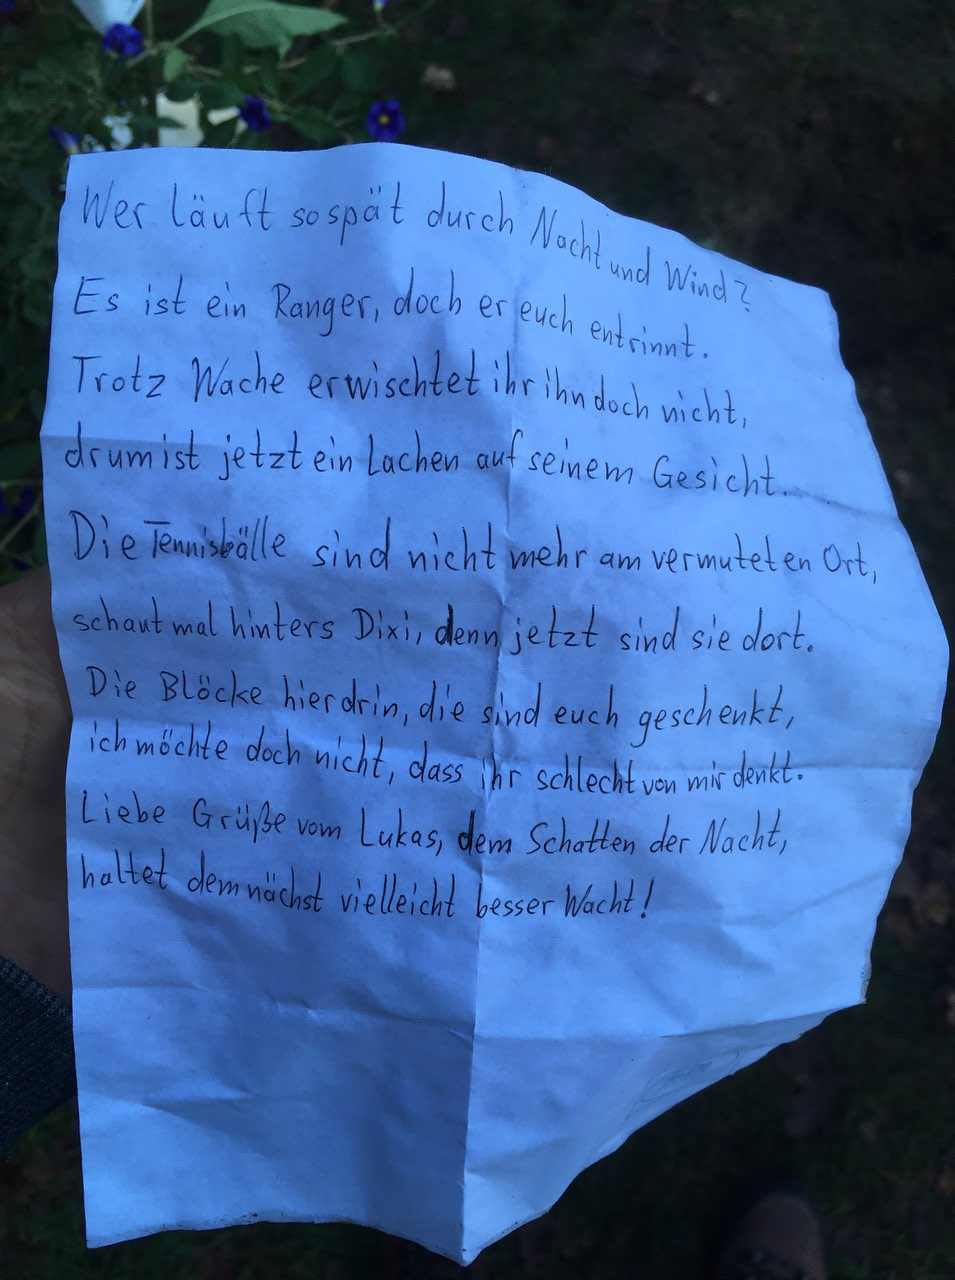 Wer läuft so spät durch Nacht und Wind?
Es ist ein Ranger, doch er euch entrinnt.
Trotz Wache erwischtet ihr ihn doch nicht,
drum ist jetzt ein Lachen auf seinem Gesicht.
Die Tennisbälle sind nicht mehr am vermuteten Ort,
schaut mal hinters Dixi, denn jetzt sind sie dort.
Die Blöcke hier drin, die sind euch geschenkt,
ich möchte doch nicht, dass ihr schlecht von mir denkt.
Liebe Grüße vom Lukas, dem Schatten der Nacht,
haltet demnächst vielleicht besser Wacht!